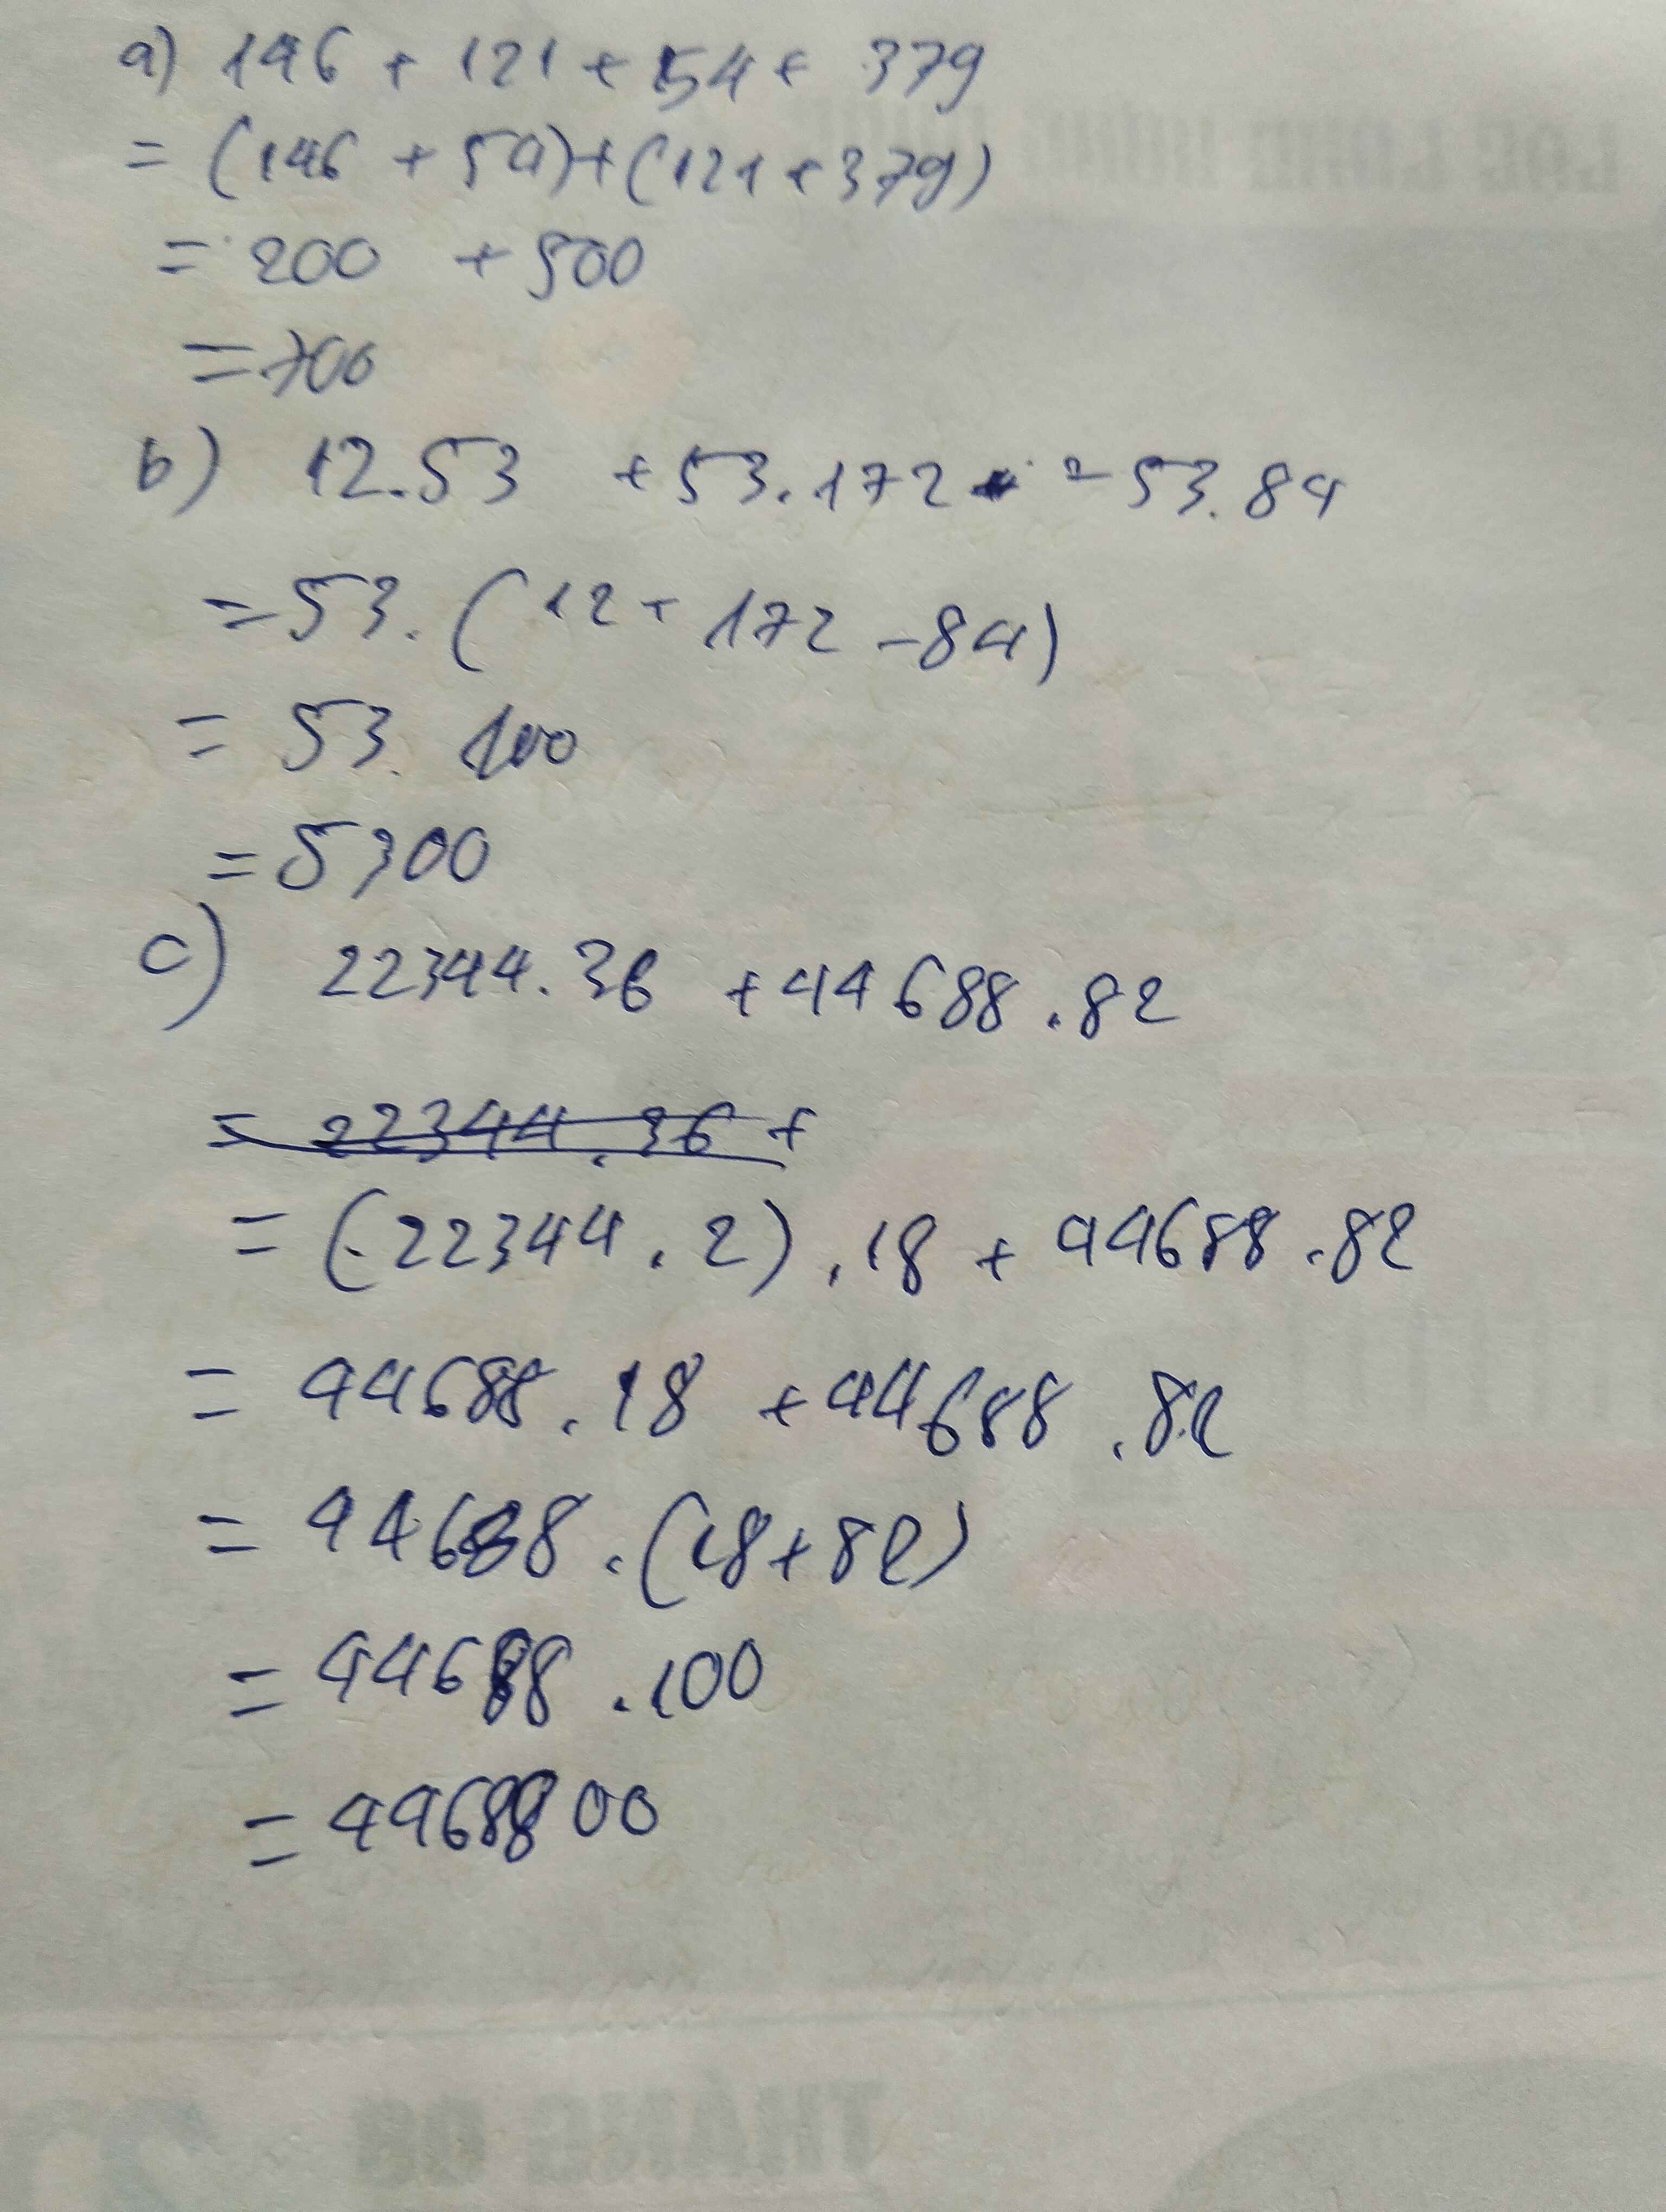 a) 146 + 121 + 54 + 379
= (146 + 54) + (121 + 379)
= 200 + 500
= 700
b) 12.53 + 53.172 - 53.84
= 53. (12 + 172 - 84)
= 53. 100
= 5300
c) 22344.36 + 44688.82
= 22344.36 +
= (22344.2).18 + 44688.82
= 44688.18 + 44688.82
= 44688.(18+82)
= 44688.100
= 4468800
THÁNG 08